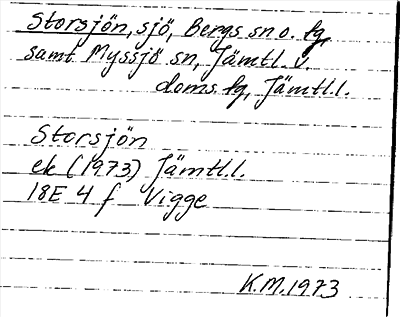 Storsjön, sjö, Bergs sn o. fg,
samt Myssjö sn, Jämtl. v.
doms. fg, Jämtl.l.
Storsjön
ek (1973) Jämtl.l.
18E 4 f Vigge
K.M.1973